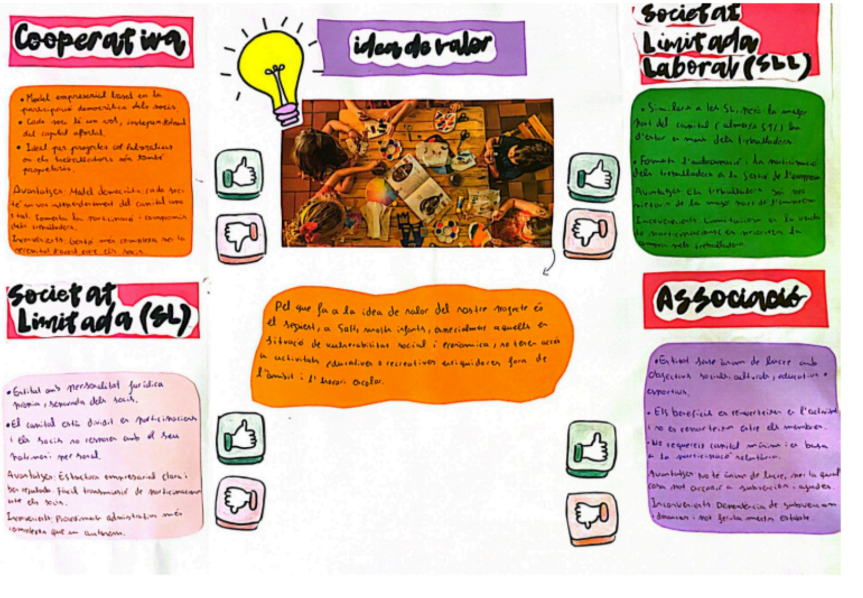 Cooperativa
• Model empresarial basat en la
participació democràtica dels socis.
• Cada soci té un vot, independentment
del capital aportat.
• Ideal per projectes col·laboratius
on els treballadors són també
propietaris.
Avantatges: Model democràtic, cada soci
té un vot independentment del capital
Fomenta la participació i compromís
dels treballadors.
Inconvenients: Gestió més complexa per la
idea de valor
Societat
Limitada
Laboral (SLL)
• Similar a les SL, però la major
part del capital (almenys 51%) ha
d'estar en mans dels treballadors.
• Fomenta l'autoocupació i la participació
dels treballadors a la gestió de l'empresa
Avantatges: Els treballadors són
de la major part de l'empresa
Inconvenients: Limitacions en la venda
de participacions en prioritzar la
compra pels treballadors.
Pel que fa a la idea de valor del nostre projecte és
el següent, a Salt, molts infants, especialment aquells en
situació de vulnerabilitat social i econòmica, no tenen accés
a activitats educatives o recreatives enriquidores fora de
l'àmbit i l'horari escolar.
Societat
Limitada (SL)
• Entitat amb personalitat jurídica
pròpia, separada dels socis.
• El capital està dividit en participacions
i els socis no responen amb el seu
patrimoni personal.
Avantatges: Estructura empresarial clara i
ben regulada. Fàcil transmissió de participacions
entre els socis.
Inconvenients: Procediment administratiu més
complexa que un autònom.
Associació
• Entitat sense ànim de lucre amb
objectius socials, culturals, educatius o
esportius.
• Els beneficis es reinverteixen en l'activitat
i no es reparteixen entre els membres.
• No requereix capital mínim i es basa
a la participació voluntària.
Avantatges: No té ànim de lucre, per la qual
cosa pot accedir a subvencions i ajudes.
Inconvenients: Dependència de subvencions
i donacions i pot